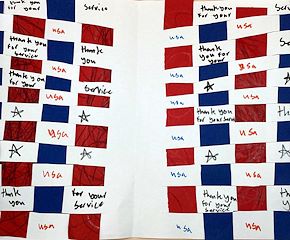 thank you
for your
service
usa
thank you
for your
service
thank
you
usa
thank you
for your
service
usa
usa
usa
thank
you
for your
service
usa
thank you
for your
service
usa
thank you
for your
usa
usa
usa
thank you
for your
usa
thank you
for your service
usa
usa
thank
you
for your
service
usa